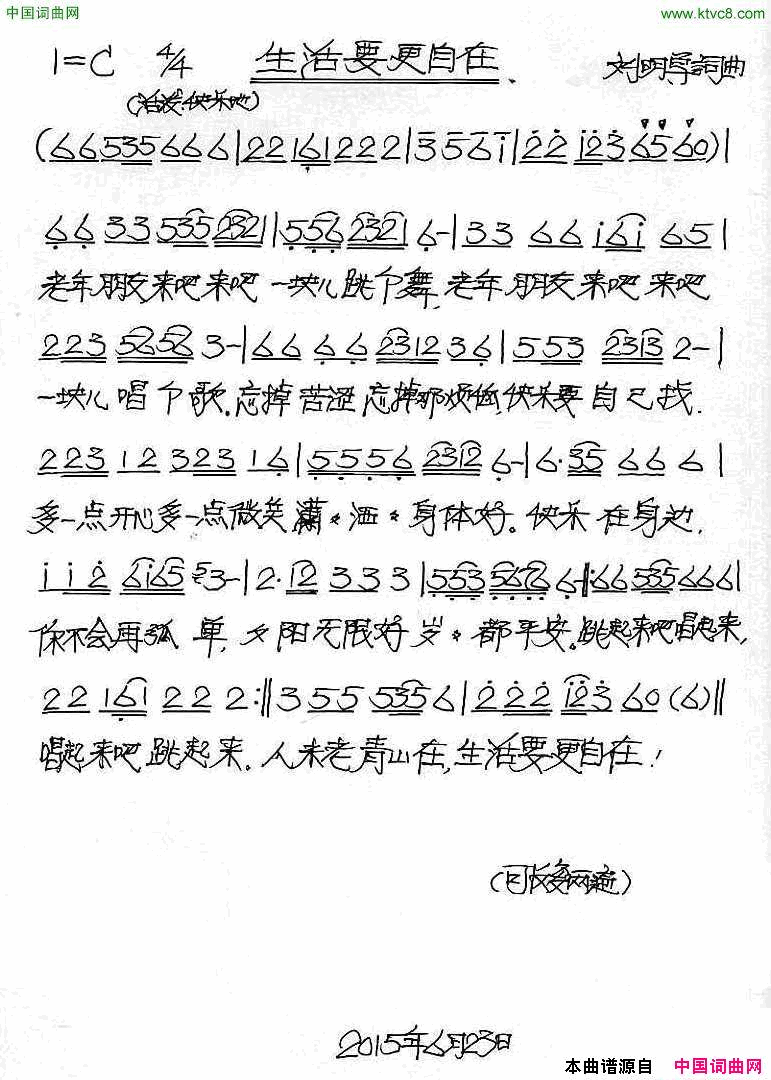 中国词曲网 www.ktvc8.com
1=C 4/4 生活要更自在 刘明导詞曲
(活泼 快乐地)
(6 6 535 6 6 6 | 2 2 161 2 2 2 | 3 5 6 i | 2 2 123 65 60) |
6 6 3 3 535 232 | 556 232 6 - | 3 3 6 6 i6i 6 5 |
老年朋友来吧来吧 一块儿跳个舞,老年朋友来吧 来吧
223 5656 3 - | 6 6 6 6 2312 3 6 | 5 53 2313 2 - |
一块儿唱个歌.忘掉苦涩忘掉那烦恼,快乐要自己找.
223 1 2 323 1 6 | 5 5 5 6 2312 6 - | 6· 35 6 6 6 |
多一点开心多一点微笑潇 洒 身体好。快乐在身边,
i i 2 6i65 3 - | 2· 12 3 3 3 | 553 5676 6 - |: 66 535 666 |
你不会再孤单,夕阳无限好岁 都平安。跳起来吧唱起来,
2 2 161 2 2 2 :|| 3 5 5 5 535 6 | 2 2 2 123 60 (6) ||
唱起来吧跳起来.人未老青山在,生活要更自在!
2015年6月23日
本曲谱源自 中国词曲网